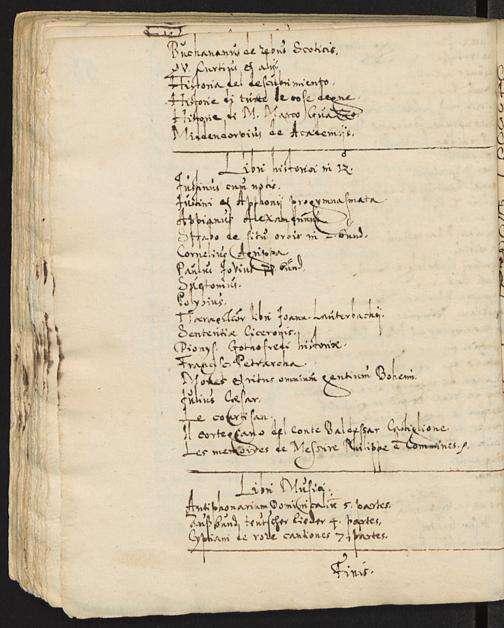 Buchananus de rebus Scoticis.
Curtius et alij
Historia del descubrimiento.
Historie di tutte le cose degne
Historie di M. Marco Guazzo
Middendorpius de Academijs.
Libri historici in 12.
Justinus cum notis.
Justini et Apthonij progymnasmata
Appianus Alexandrinus
Strabo de situ orbis in 2 bund.
Cornelius Agrippa
Paulus Jovius bund.
Suetonius.
Polybius.
libri Joann. Lauterbachij.
Sententiæ Ciceronis.
Dionys. Gothofredi historiæ.
Francisc. Petrarcha.
Mores et ritus omnium gentium Bohemi.
Julius Cæsar.
Le courtisan.
Il cortegiano del Conte Baldessar Castiglione
Les memoires de Messire Philippe de Commines.
Libri Musici.
Antiphonarium Dominicaliu 5. partes.
Aussbund teutscher lieder 4. partes.
Cypriani de rore cantiones 7. partes.
Finis.